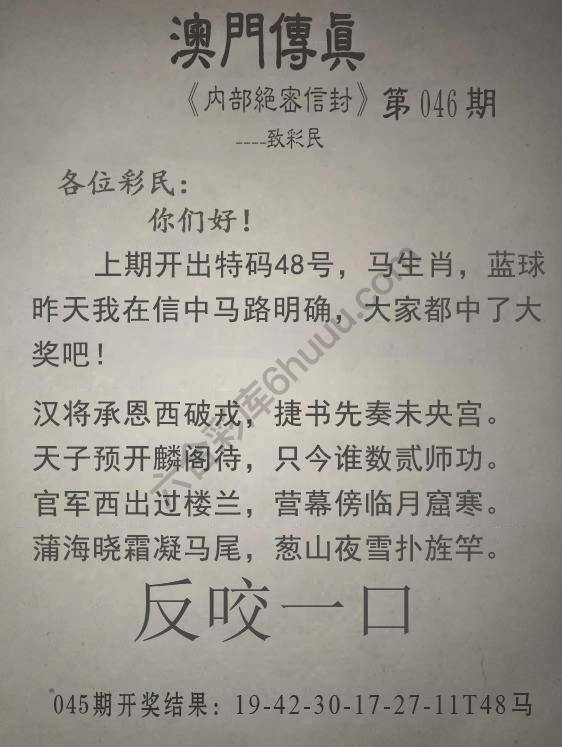 澳門傳眞
《内部絕密信封》第046期
----致彩民
各位彩民:
你们好!
上期开出特码48号，马生肖，蓝球
昨天我在信中马路明确，大家都中了大
奖吧!
汉将承恩西破戎，捷书先奏未央宫。
天子预开麟阁待，只今谁数贰师功。
官军西出过楼兰，营幕傍临月窟寒。
蒲海晓霜凝马尾，葱山夜雪扑旌竿。
反咬一口
045期开奖结果: 19-42-30-17-27-11T48马
六合彩库6huuu.com